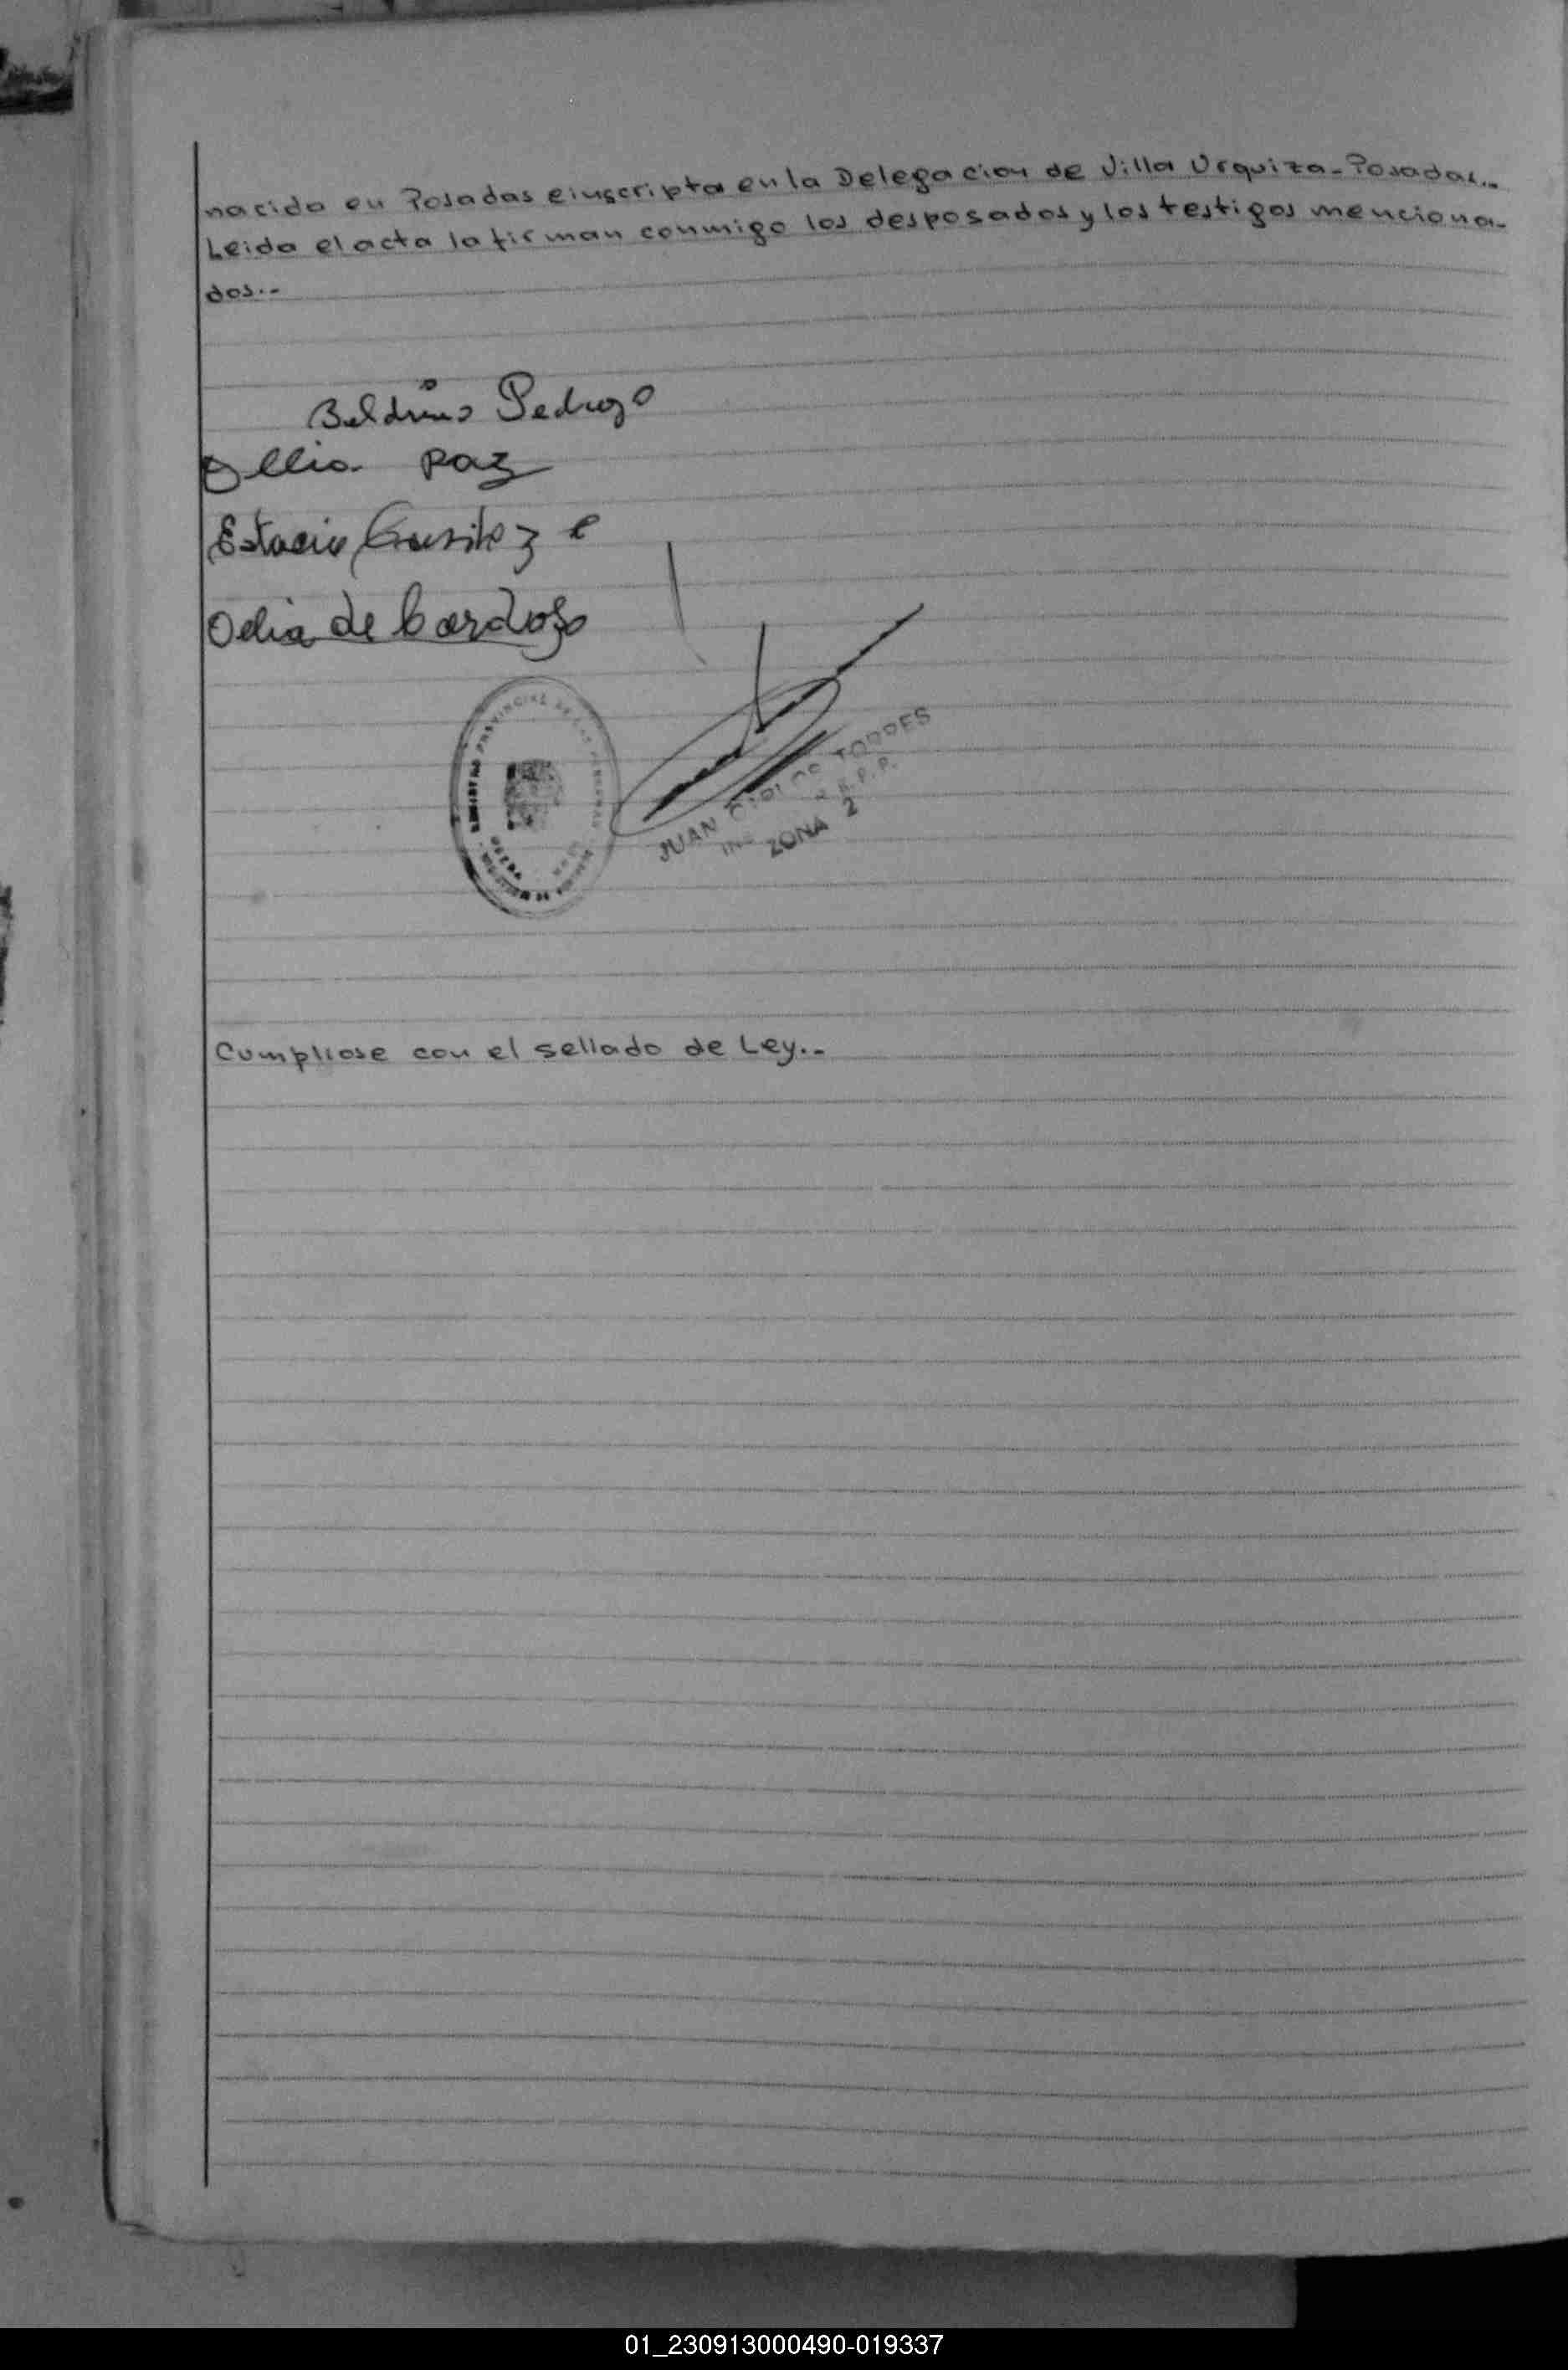 nacida en Posadas e inscripta en la Delegacion de Villa Urquiza - Posadas..-
Leida el acta la firman conmigo los desposados y los testigos menciona-
dos..-
Pedrozo
Ellia Paz
Estacio
Odia de Cardozo
REGISTRO PROVINCIAL DE LAS PERSONAS
JUAN CARLOS TORRES
ZONA 2
Cumpliose con el sellado de Ley..-
01_230913000490-019337